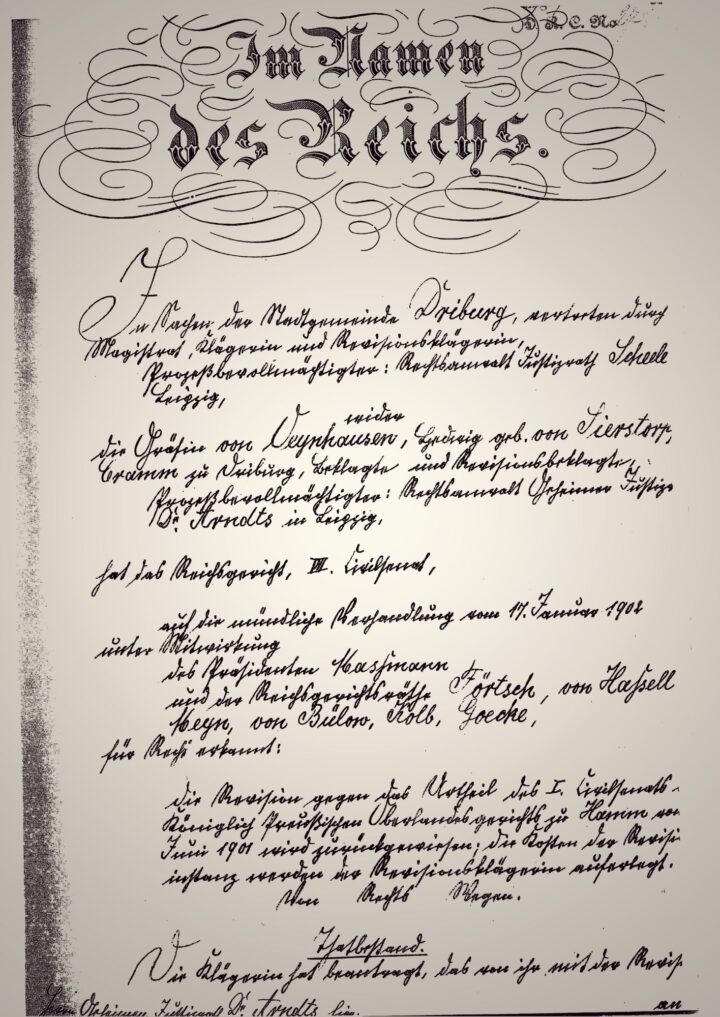 B. R. C. No
Im Namen
des Reichs.
In Sachen der Stadtgemeinde Driburg, vertreten durch
Magistrat, Klägerin und Revisionsklägerin,
Prozeßbevollmächtigter: Rechtsanwalt Justizrath Scheele
Leipzig,
wider
die Gräfin von Oeynhausen, Hedwig geb. von Sierstorp,
Cramm zu Driburg, Beklagte und Revisionsbeklagte,
Prozeßbevollmächtigter: Rechtsanwalt Geheimer Justizr
Dr. Arndts in Leipzig,
hat das Reichsgericht, VII. Civilsenat,
auf die mündliche Verhandlung vom 17. Januar 1902
unter Mitwirkung
des Präsidenten Maßmann
und der Reichsgerichtsräthe Förtsch, von Haßell
Meyn, von Bülow, Kolb, Goecke,
für Recht erkannt:
die Revision gegen das Urtheil des I. Civilsenats
Königlich Preußischen Oberlandesgerichts zu Hamm vom
Juni 1901 wird zurückgewiesen; die Kosten der Revisi
instanz werden der Revisionsklägerin auferlegt.
Von Rechts Wegen.
Thatbestand.
Die Klägerin hat beantragt, das von ihr mit der Revis
Geheimen Justizrath Dr. Arndts hier.
an